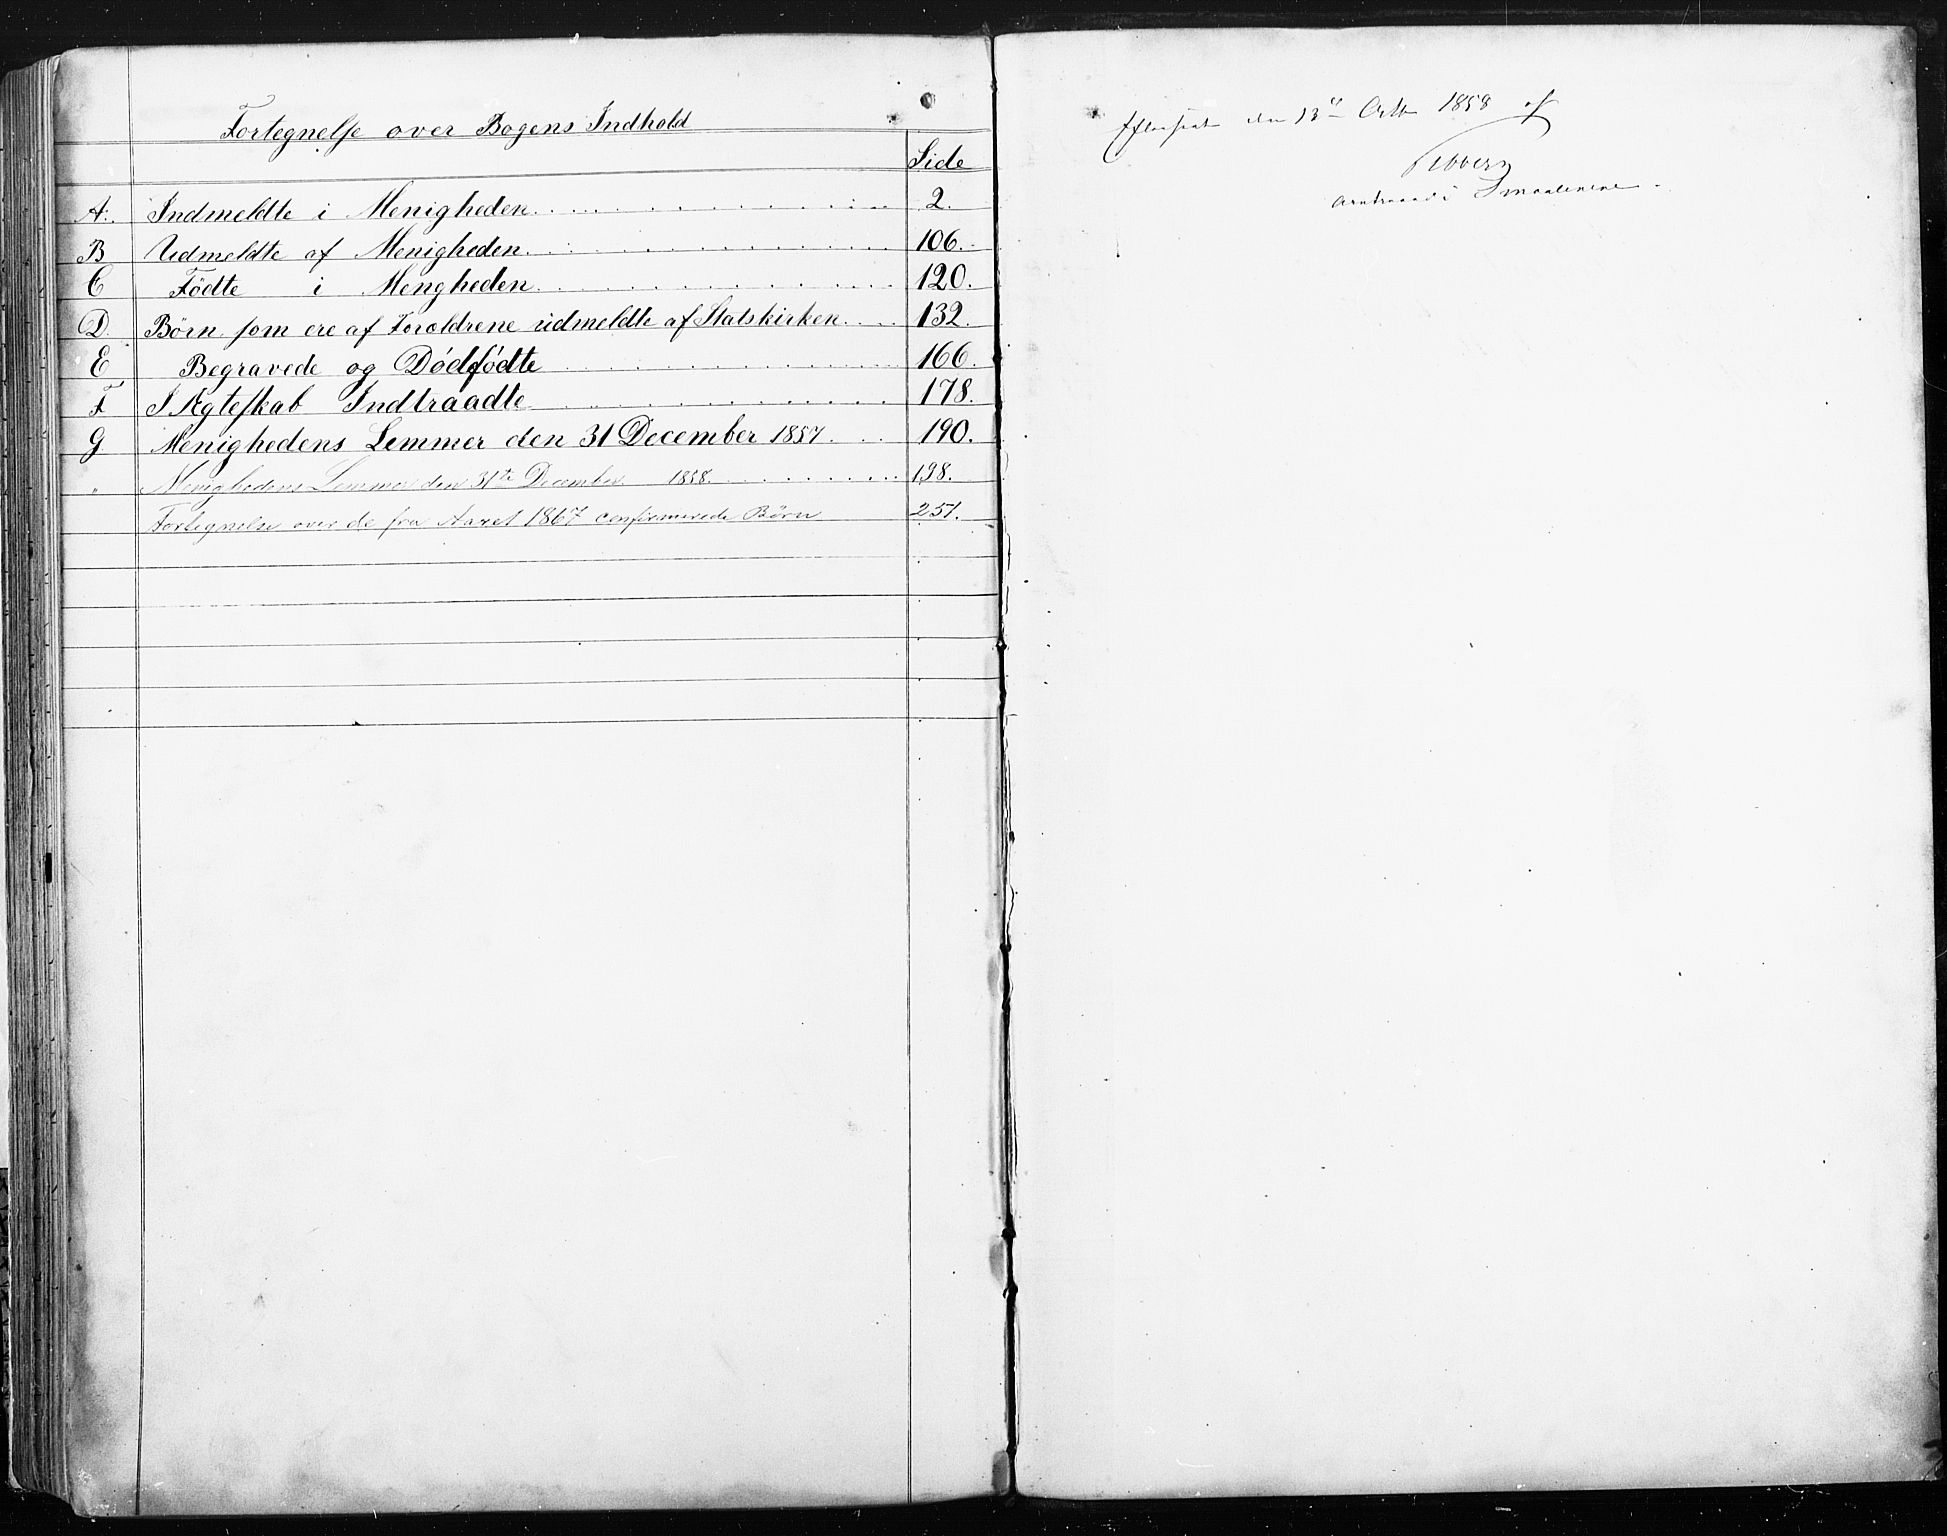 Fortegnelse over Bogens Indhold
Side
A. Indmeldte i Menigheden 2.
B Udmeldte af Menigheden 106.
C Födte i Mengheden 120.
D. Børn som ere af Forældrene udmeldte af Statskirken 132.
E Begravede og Dödfödte 166.
F I Ægteskab Indtraadte 178.
G Menighedens Lemmer den 31 December 1857. 190.
" Menighedens Lemmer den 31te December 1858. 198.
Fortegnelse over de fra Aaret 1867 confirmerede Børn 251.
den 13de Octb 1858 af
Amtmand i Smaalenene